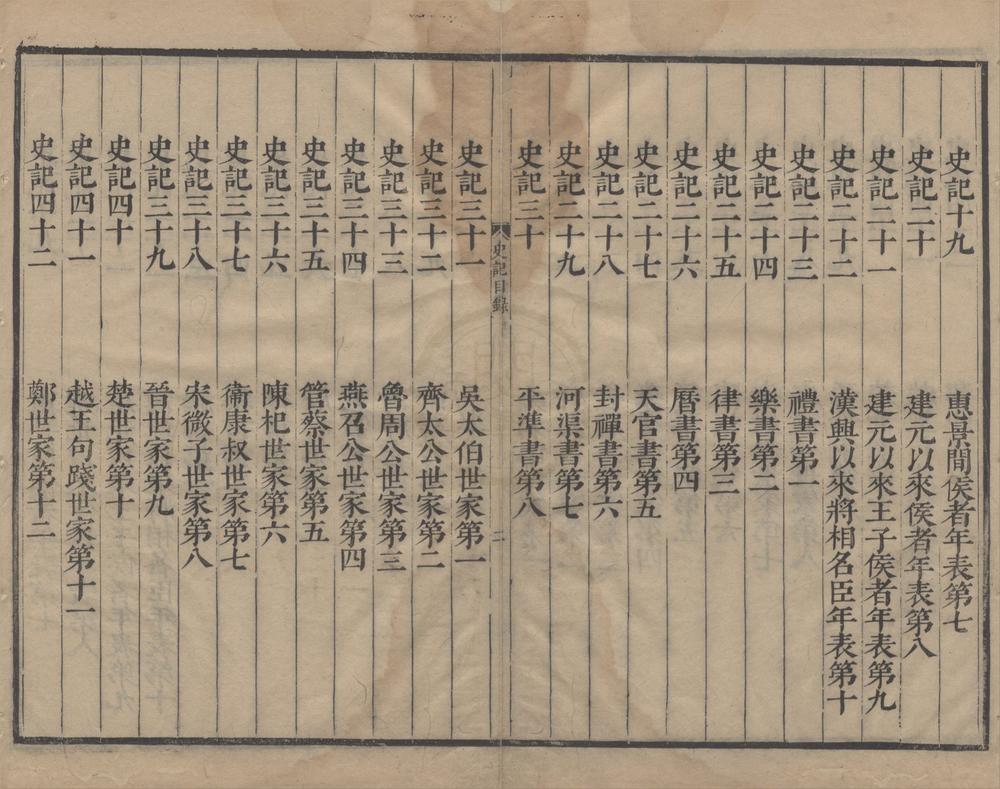 史記十九　惠景間侯者年表第七
史記二十　建元以來侯者年表第八
史記二十一　建元以來王子侯者年表第九
史記二十二　漢興以來將相名臣年表第十
史記二十三　禮書第一
史記二十四　樂書第二
史記二十五　律書第三
史記二十六　曆書第四
史記二十七　天官書第五
史記二十八　封禪書第六
史記二十九　河渠書第七
史記三十　平準書第八
史記目錄　二
史記三十一　吳太伯世家第一
史記三十二　齊太公世家第二
史記三十三　魯周公世家第三
史記三十四　燕召公世家第四
史記三十五　管蔡世家第五
史記三十六　陳杞世家第六
史記三十七　衞康叔世家第七
史記三十八　宋微子世家第八
史記三十九　晉世家第九
史記四十　楚世家第十
史記四十一　越王句踐世家第十一
史記四十二　鄭世家第十二